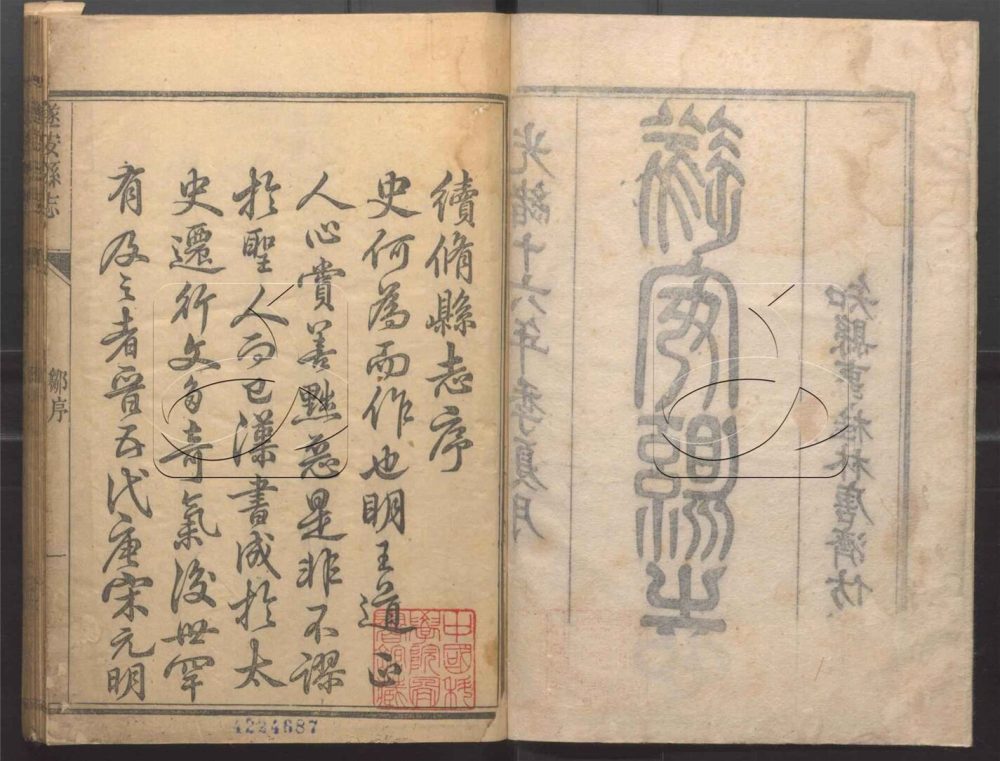 光緒十六年季夏月
遂安縣志
知縣事桂林唐濟
續脩縣志序
史何為而作也明王道正
人心賞善黜惡是非不謬
於聖人而已漢書成於太
史遷行文多奇氣後世罕
有及之者晉五代唐宋元明
遂安縣志
鄒序
一
中國科
學院圖
書館藏
4224687